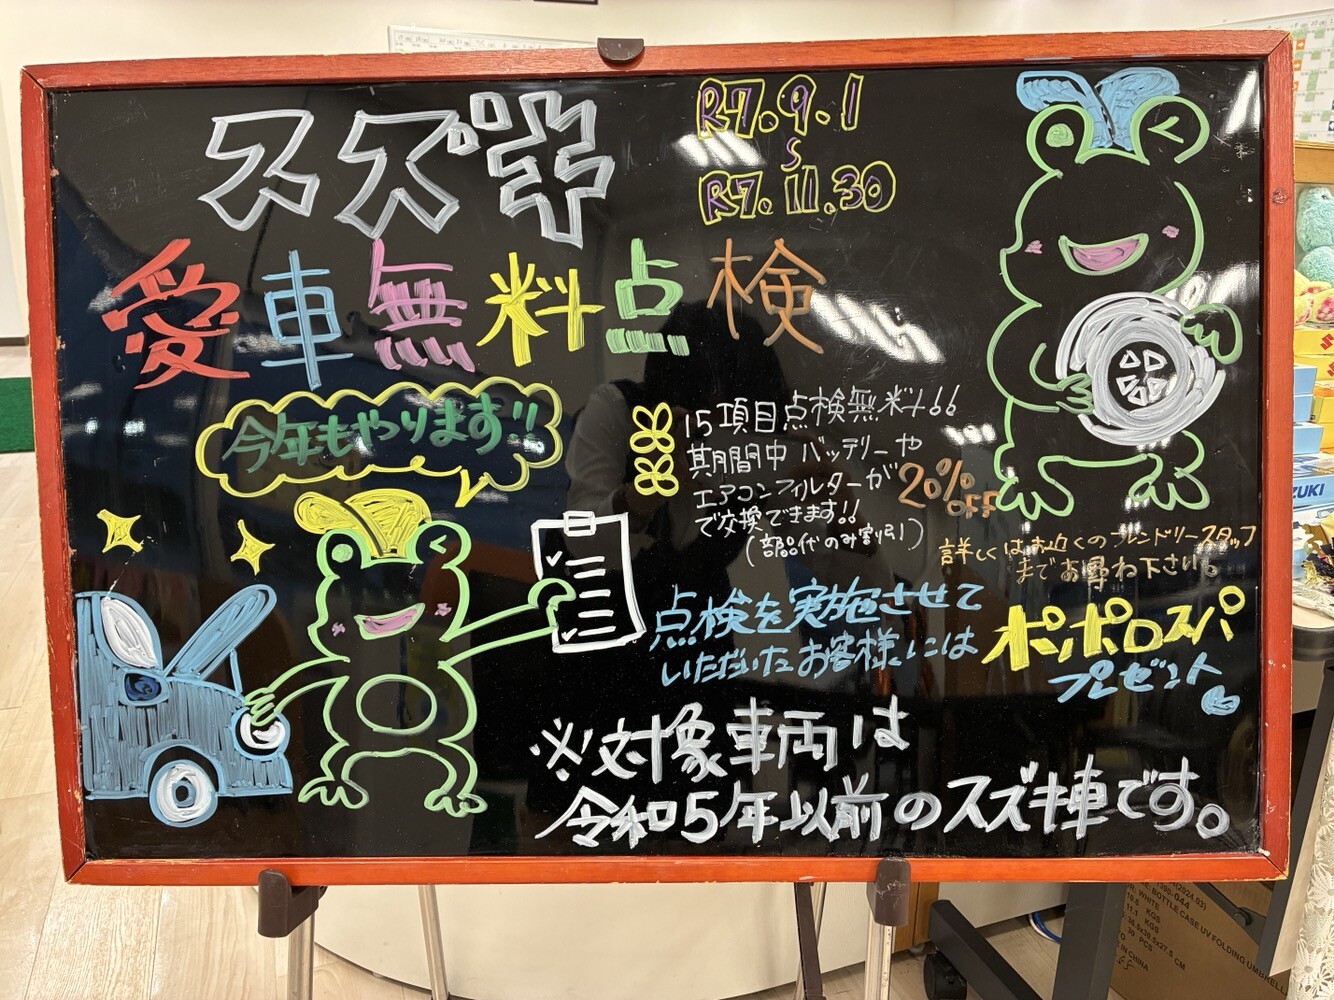 スズキ
R7.9.1
S
R7.11.30
愛車無料点検
今年もやります!!
15項目点検無料!!
期間中バッテリーや
エアコンフィルターが
20%OFF
で交換できます!!
(部品代のみ割引)
詳しくはお近くのフレンドリースタッフ
までお尋ね下さい。
点検を実施させて
いただいたお客様には
ポンポロスパ
プレゼント
※対象車両は
令和5年以前のスズキ車です。
ZUKI
(2024.03)
WHITE
BOTTLE CASE UV FOLDING UMB
KGS
KGS
CM
PCS
IN CHINA